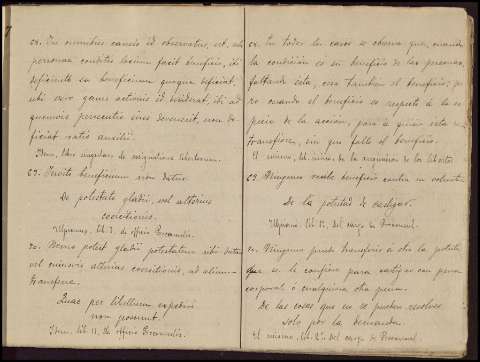 68. In omnibus causis id observatur, ut, ubi
personae conditio locum facit beneficio, ibi
deficiente ea beneficium quoque deficiat,
ubi vero genus actionis id desiderat, ibi ad
quemvis persecutio eius devenerit, non de-
ficiat ratio auxilii.
Idem, libro singulari de
69. Invito beneficium non datur.
De potestate gladii, vel alterius
coercitionis.
Ulpianus, lib. 1. de officio Proconsulis.
70. Nemo potest gladii potestatem sibi datam
vel cuiusvis alterius coercitionis, ad alium
transferre.
Quae per libellum expediri
non possunt.
Idem, lib. de officio Proconsulis.
68. En todos los casos se observa que, cuando
la condición es en beneficio de las personas,
faltando esta, cesa tambien el beneficio; pe-
ro cuando el beneficio es respecto á la es-
pecie de la acción, pasa á quien esta se
transfiere, sin que falte el beneficio.
El mismo, lib. de la de la libertad.
69. Ninguno recibe beneficio contra su voluntad.
De la potestad de castigar.
Ulpiano, lib. 1º. del cargo de Proconsul.
70. Ninguno puede transferir á otro la potestad
que se le confirió para castigar con pena
corporal ó cualquiera otra pena.
De las cosas que no se pueden resolver
solo por la demanda.
El mismo, lib. del cargo de Proconsul.